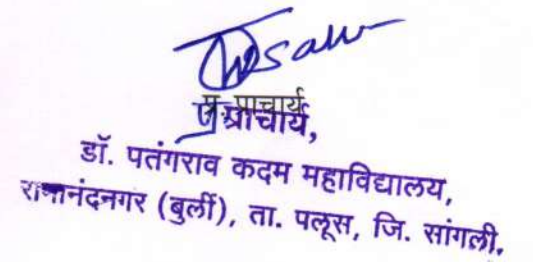 प्र. प्राचार्य
प्राचार्य,
डॉ. पतंगराव कदम महाविद्यालय,
रामानंदनगर (बुर्ली), ता. पलूस, जि. सांगली.